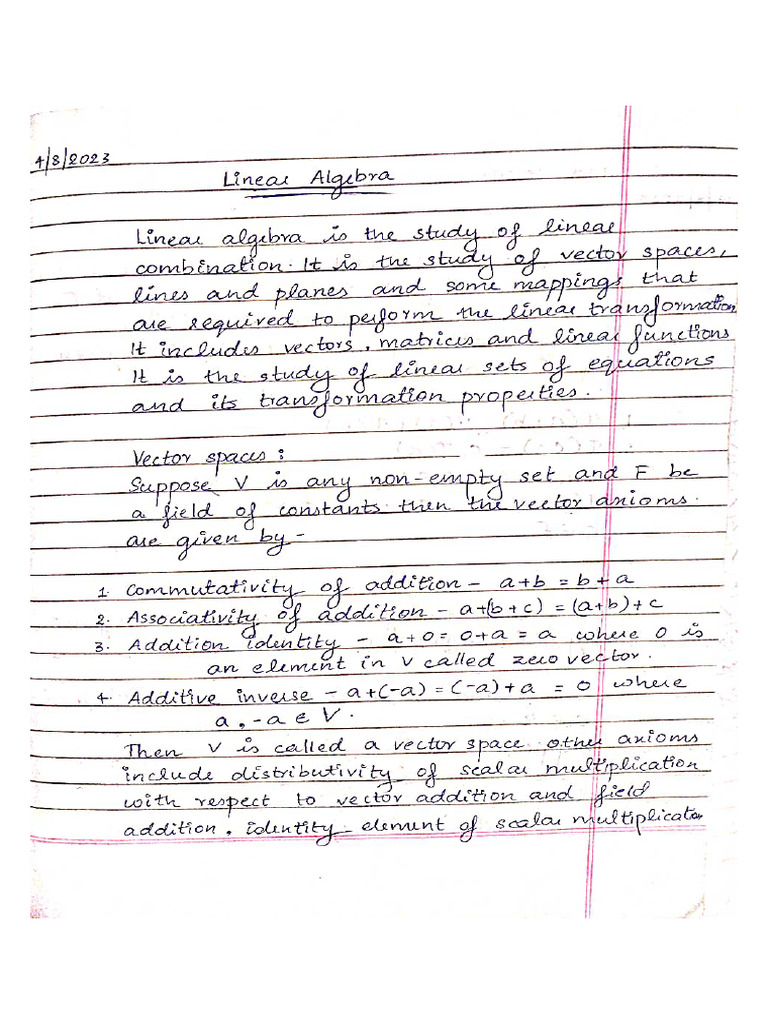 4/8/2023
Linear Algebra
Linear algebra is the study of linear
combination. It is the study of vector spaces,
lines and planes and some mappings that
are required to perform the linear transformation
It includes vectors, matrices and linear functions
It is the study of linear sets of equations
and its transformation properties.
Vector spaces:
Suppose V is any non-empty set and F be
a field of constants then the vector axioms.
are given by -
1. Commutativity of addition - a+b = b+a
2. Associativity of addition - a+(b+c) = (a+b)+c
3. Addition identity - a+0 = 0+a = a where 0 is
an element in V called zero vector.
4. Additive inverse - a+(-a) = (-a)+a = 0 where
a, -a ∈ V.
Then V is called a vector space other axioms
include distributivity of scalar multiplication
with respect to vector addition and field
addition, identity element of scalar multiplication